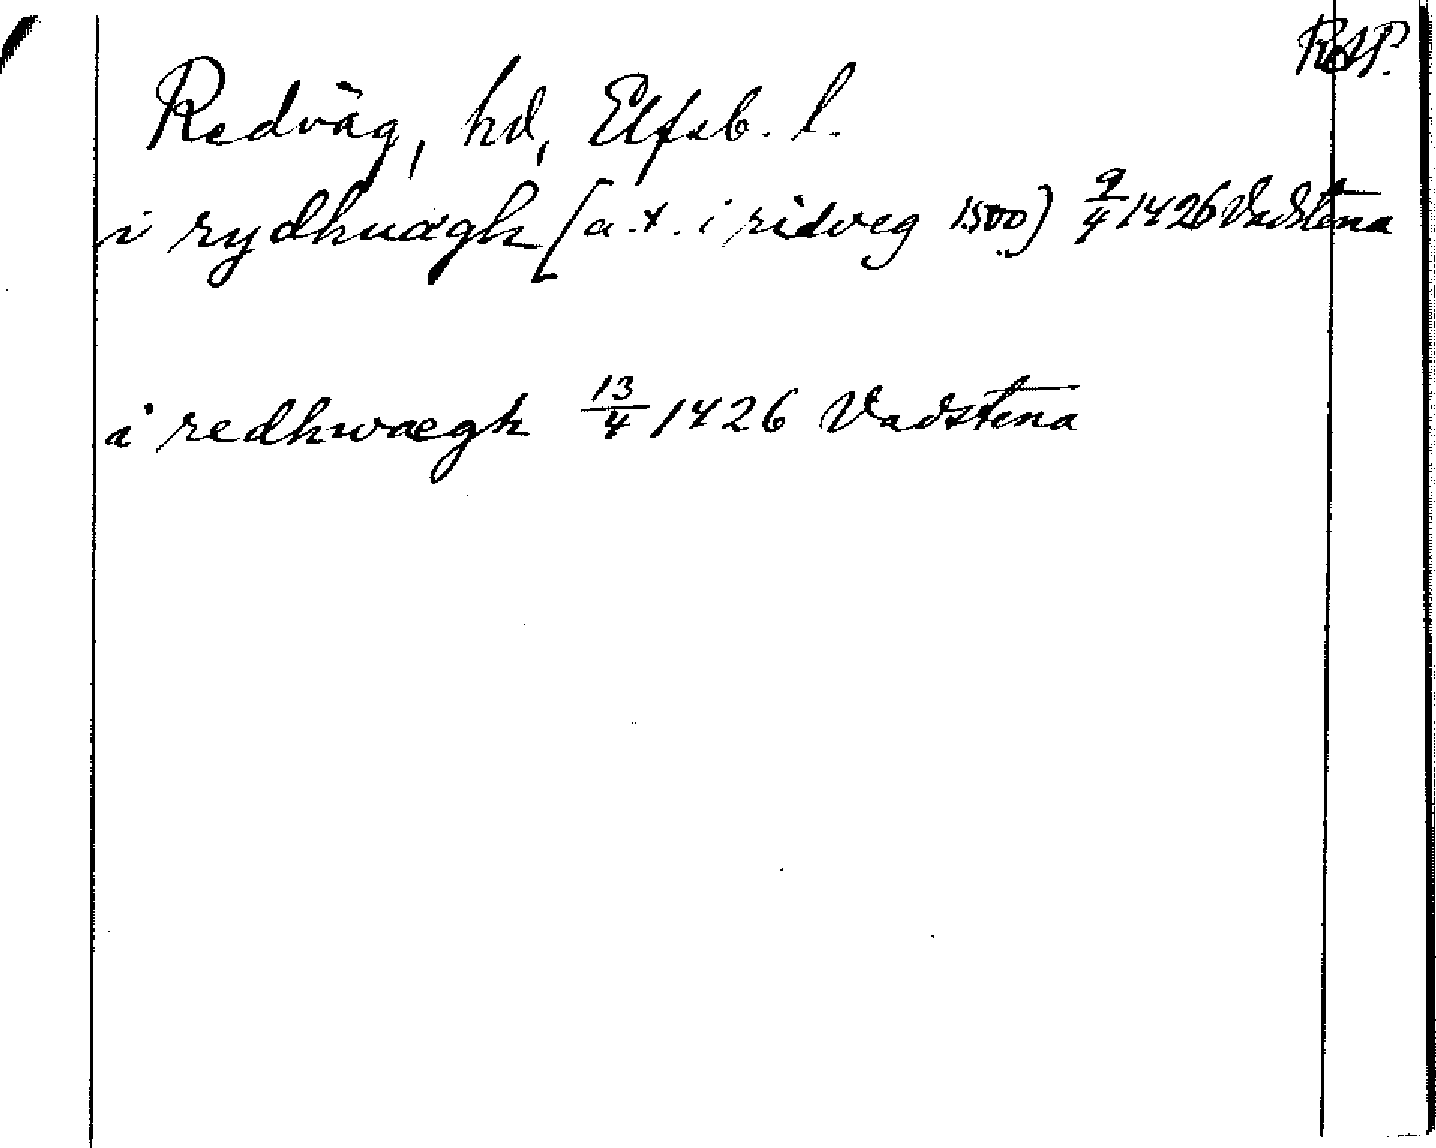 RAP.
Redväg, hd, Elfsb. l.
i rydhuægh [a. t. i ridveg 1500) 9/4 1426 Vadstena
i redhwægh 13/4 1426 Vadstena